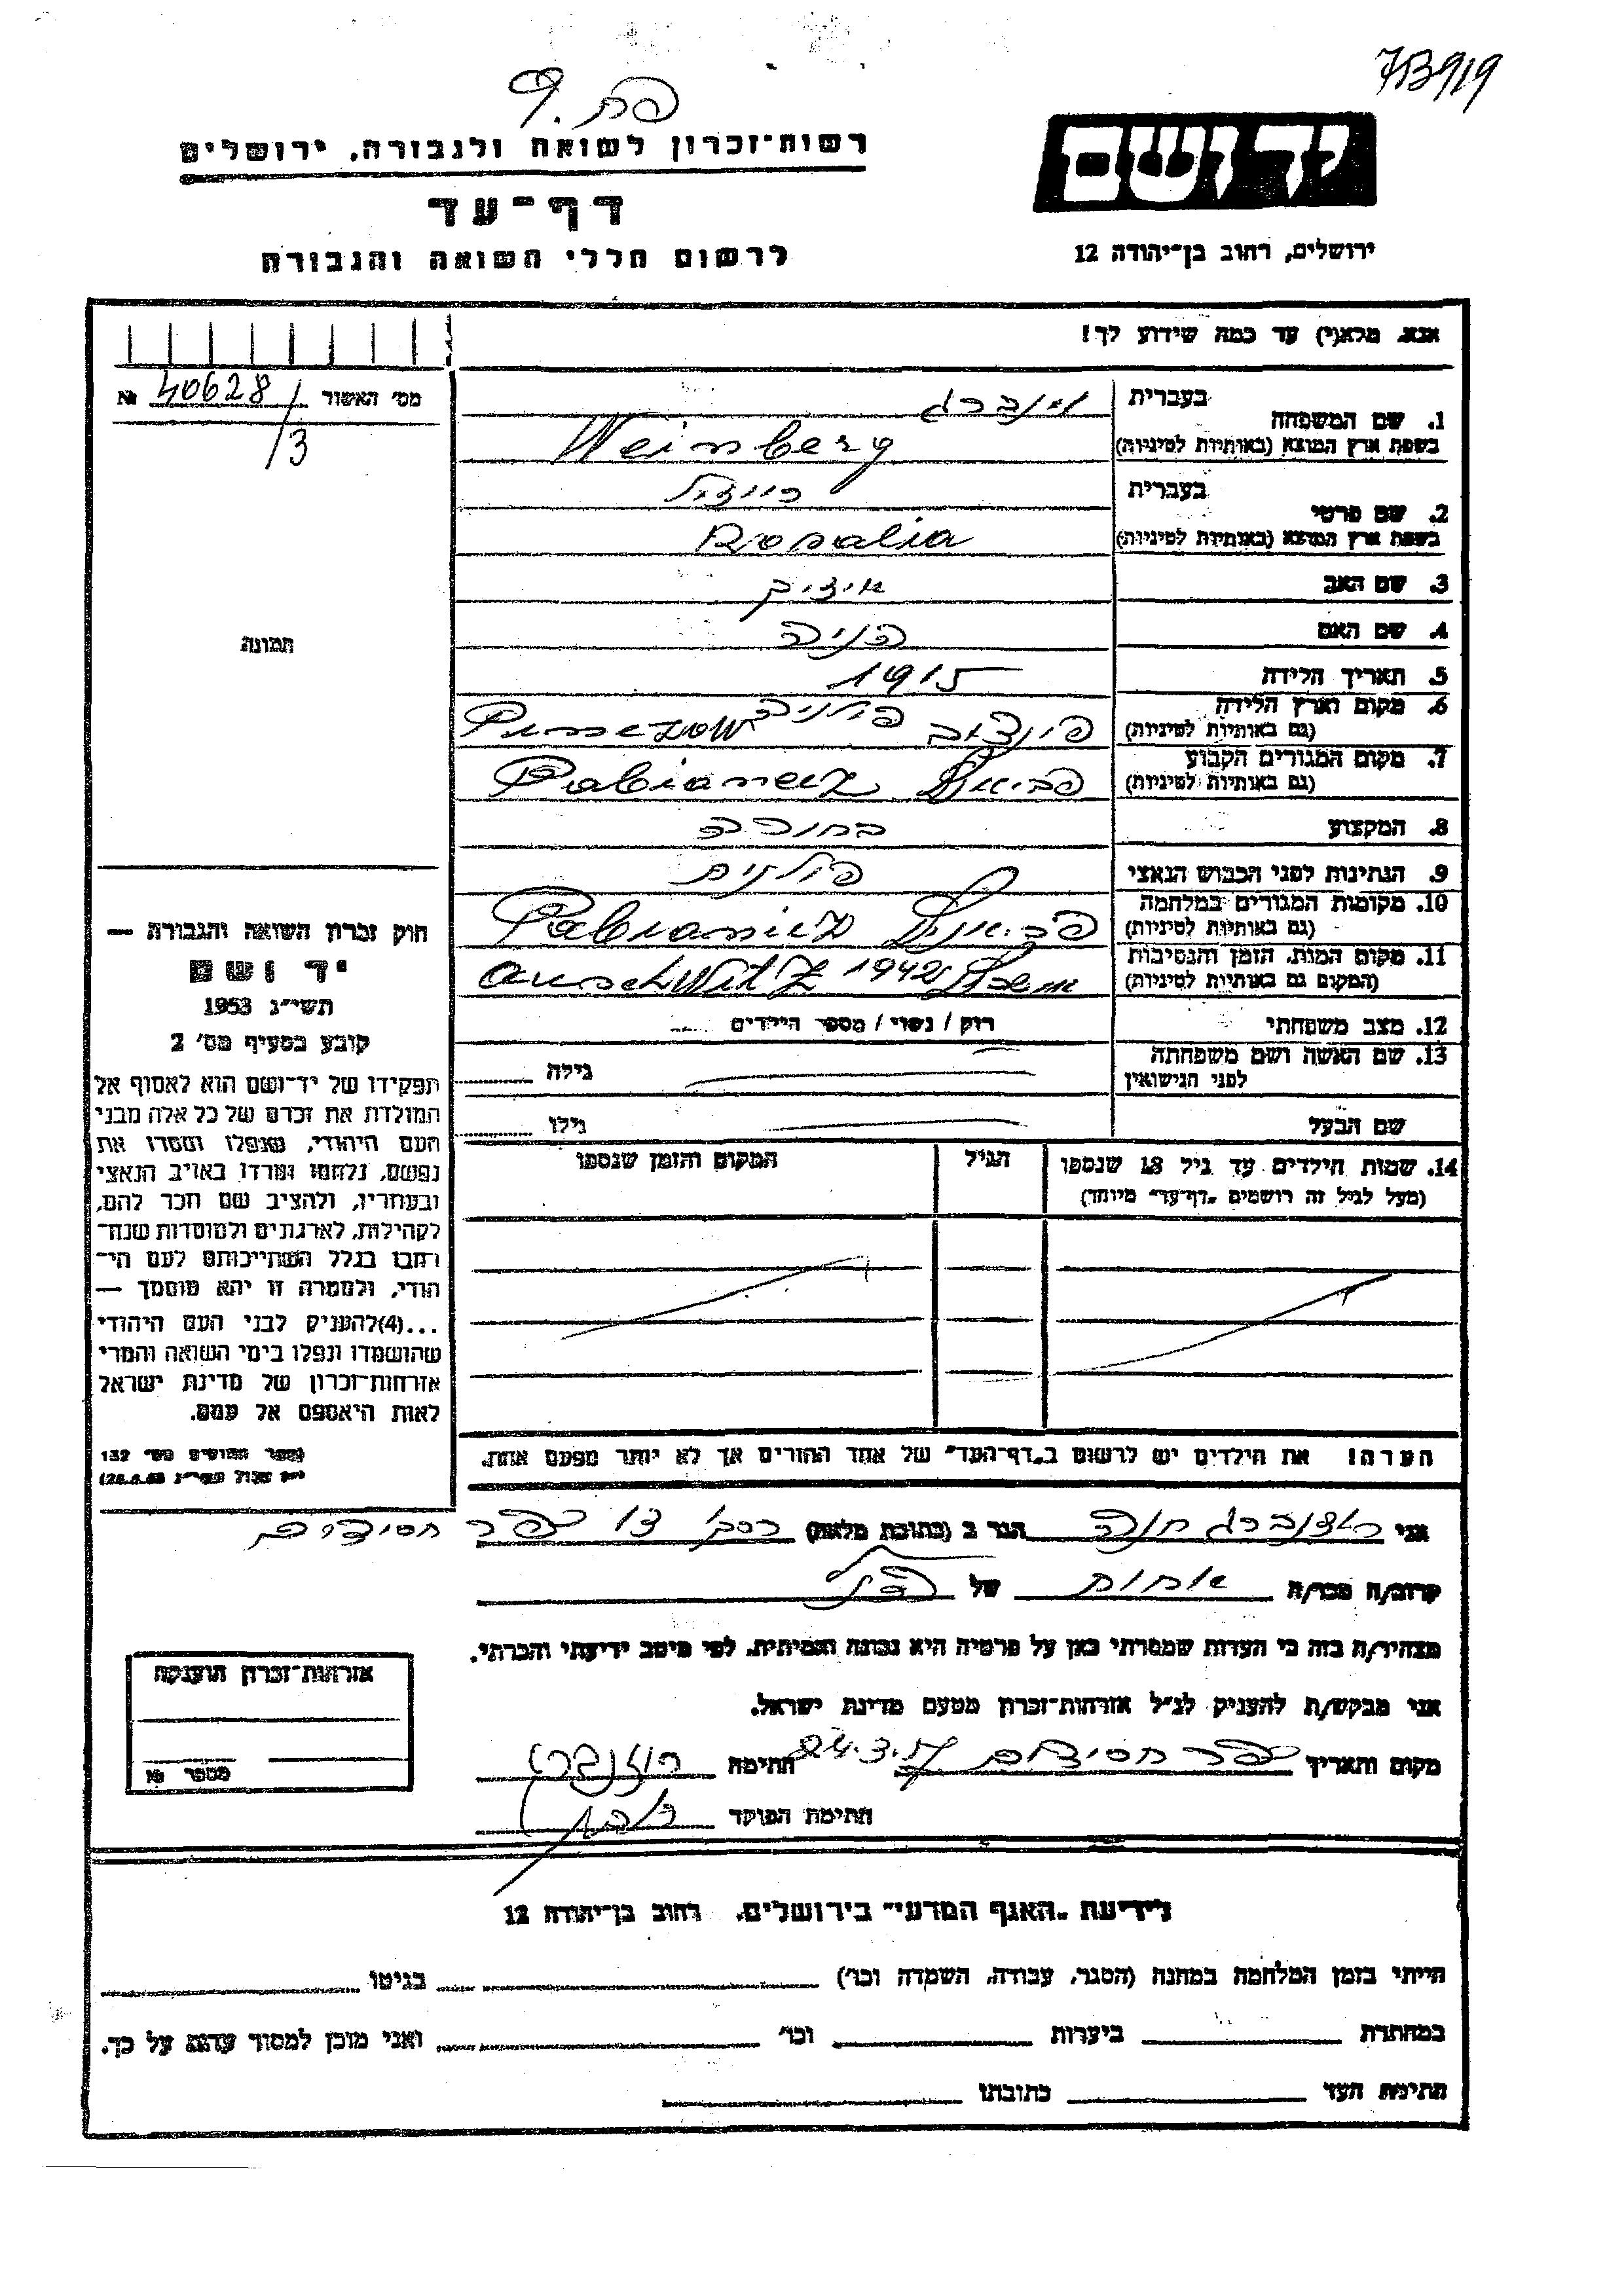 713919
פת. 9
יד ושם
ירושלים, רחוב בן־יהודה 12
רשות־זכרון לשואה ולגבורה, ירושלים
דף־עד
לרשום חללי השואה והגבורה
אנא, מלא(י) עד כמה שידוע לך!
מס' האשור 40628/3 №
1. שם המשפחה בעברית וינברג
בשפת ארץ המוצא (באותיות לטיניות) Weinberg
2. שם פרטי בעברית רייזל
בשפת ארץ המוצא (באותיות לטיניות) Rosalia
3. שם האב איציק
4. שם האם
5. תאריך הלידה 1915
6. מקום וארץ הלידה פולניה
(גם באותיות לטיניות)
7. מקום המגורים הקבוע
(גם באותיות לטיניות)
8. המקצוע בחורה
9. הנתינות לפני הכבוש הנאצי פולנית
10. מקומות המגורים במלחמה
(גם באותיות לטיניות)
11. מקום המות, הזמן והנסיבות 1942 Auschwitz
(המקום גם באותיות לטיניות)
12. מצב משפחתי רוק / נשוי / מספר הילדים
13. שם האשה ושם משפחתה גילה
לפני הנישואין
שם הבעל גילו
14. שמות הילדים עד גיל 18 שנספו הגיל המקום והזמן שנספו
(מעל לגיל זה רושמים "דף־עד" מיוחד)
הערה! את הילדים יש לרשום ב"דף־העד" של אחד ההורים אך לא יותר מפעם אחת.
תמונה
חוק זכרון השואה והגבורה —
יד ושם
תשי"ג 1953
קובע בסעיף מס' 2
תפקידו של יד־ושם הוא לאסוף אל
המולדת את זכרם של כל אלה מבני
העם היהודי, שנפלו ומסרו את
נפשם, נלחמו ומרדו באויב הנאצי
ובעוזריו, ולהציב שם וזכר להם,
לקהילות, לארגונים ולמוסדות שנח־
רבו בגלל השתייכותם לעם הי־
הודי, ולמטרה זו יהא מוסמך —
...(4) להעניק לבני העם היהודי
שהושמדו ונפלו בימי השואה והמרי
אזרחות־זכרון של מדינת ישראל
לאות היאספם אל עמם.
(ספר החוקים מס' 132
אני רוזנברג חנה הגר ב (כתובת מלאה) כפר חסידים
קרוב/ה מכר/ה אחות של
מצהיר/ה בזה כי העדות שמסרתי כאן על פרטיה היא נכונה ואמיתית, לפי מיטב ידיעתי והכרתי.
אני מבקש/ת להעניק לנ"ל אזרחות־זכרון מטעם מדינת ישראל.
מקום ותאריך כפר חסידים חתימה רוזנברג
חתימת הפוקד
אזרחות־זכרון הוענקה
מספר №
לידיעת "האגף המדעי" בירושלים, רחוב בן־יהודה 12
הייתי בזמן המלחמה במחנה (הסגר, עבודה, השמדה וכו') בגיטו
במחתרת ביערות וכו' ואני מוכן למסור עדות על כך.
חתימת העד כתובתו